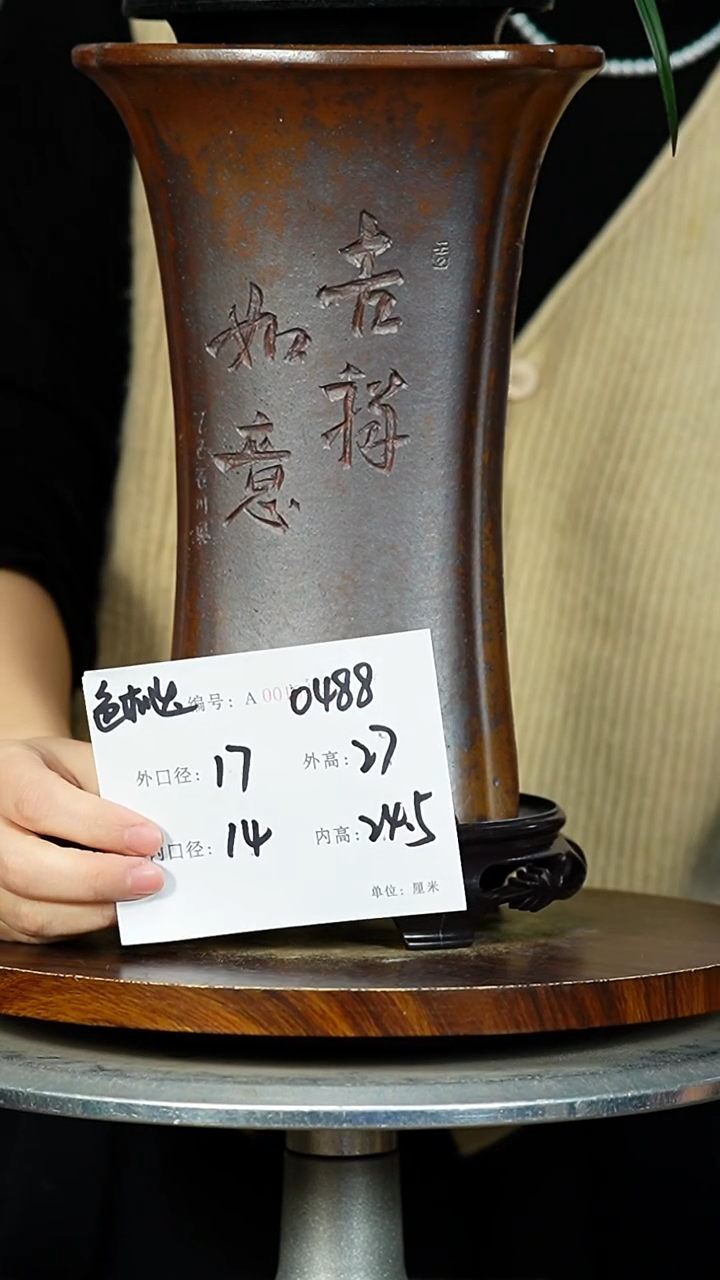 吉祥
如意
编号: A 00 0488
外口径: 17
外高: 27
内口径: 14
内高: 24.5
单位: 厘米